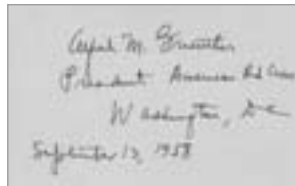 Alfred M. Gruenther
President American Red Cross
Washington, D.C.
September 13, 1958